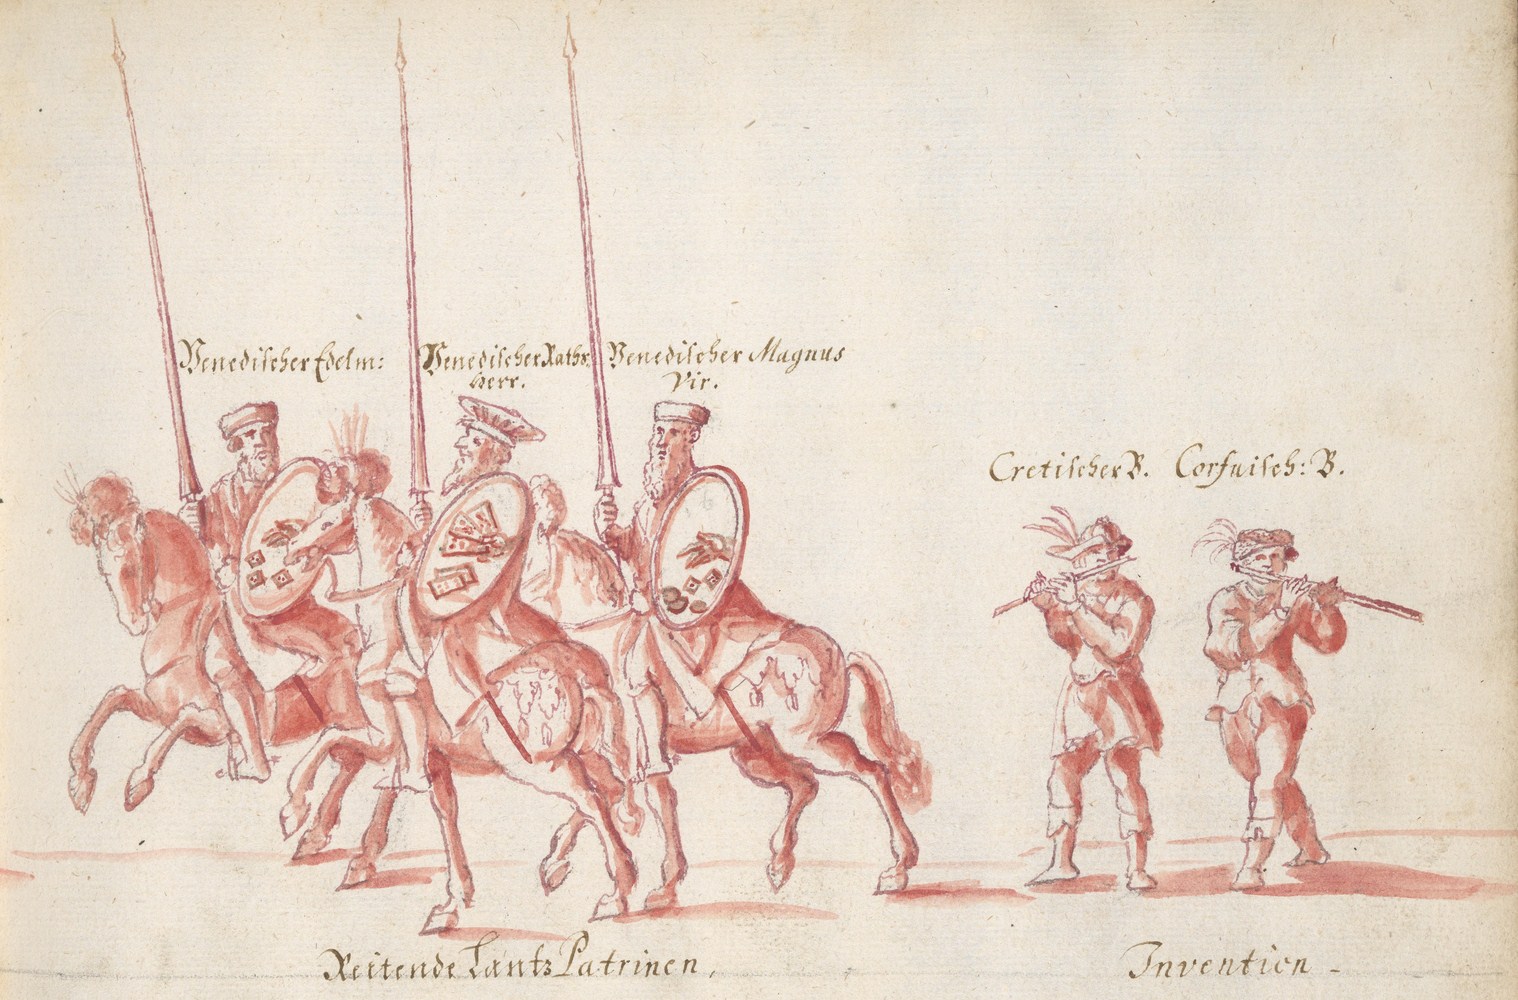 Venedischer Edelm:
Venedischer Raths
Herr.
Venedischer Magnus
Vir.
Cretischer B.
Corfuisch: B.
Reitende Lantz Patrinen,
Invention -